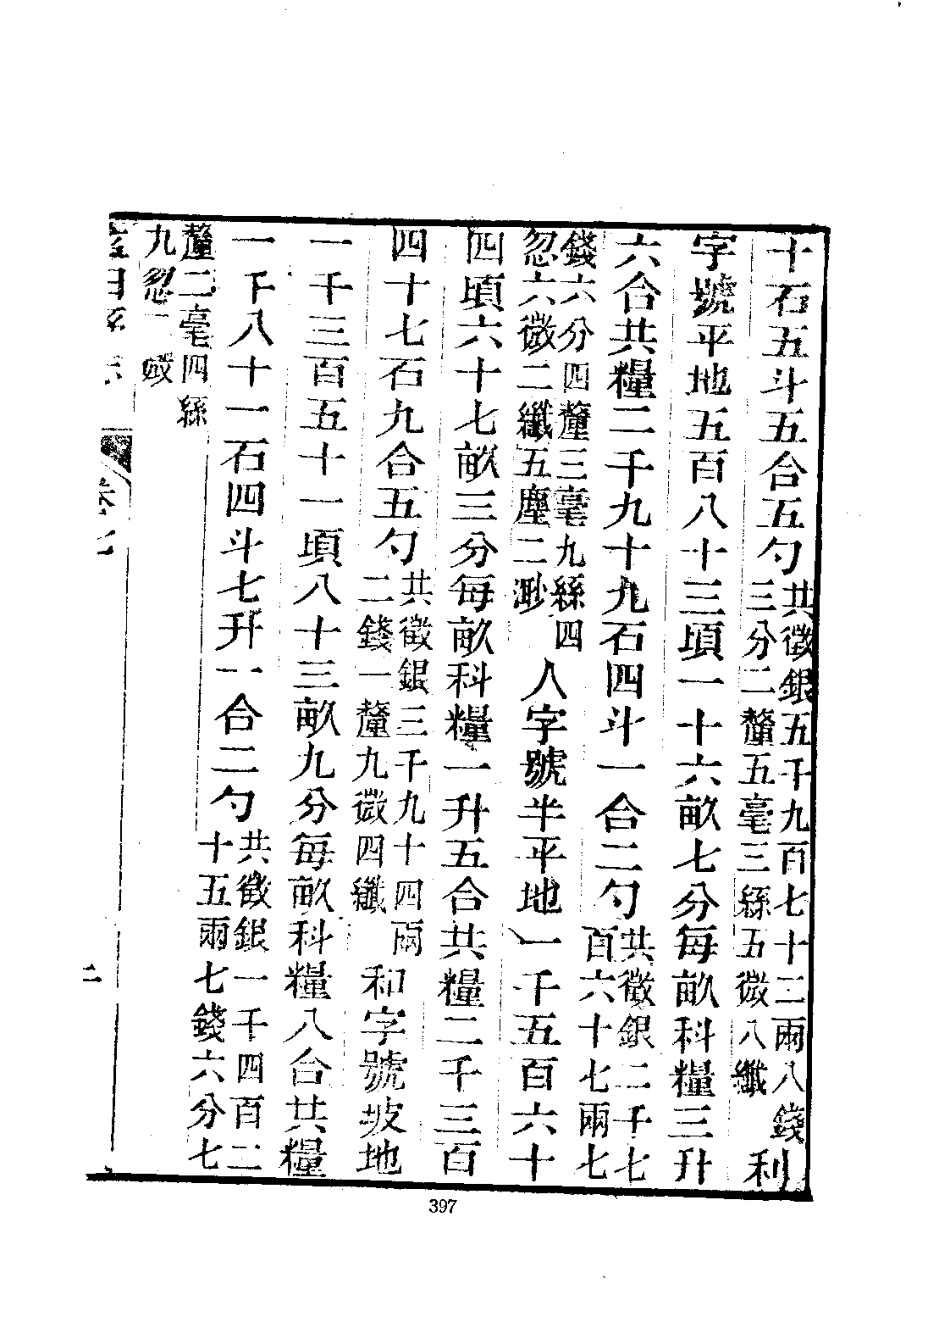 十石五斗五合五勺共徵銀五千九百七十二兩八錢三分二釐五毫三絲五微八纖利
字號平地五百八十三頃一十六畝七分每畝科糧三升
六合共糧二千九十九石四斗一合二勺共徵銀二千七百六十七兩七
錢六分四釐三毫九絲四忽六微二纖五塵二渺人字號半平地一千五百六十
四頃六十七畝三分每畝科糧一升五合共糧二千三百
四十七石九合五勺共徵銀三千九十四兩二錢一釐九微四纖和字號坡地
一千三百五十一頃八十三畝九分每畝科糧八合共糧
一千八十一石四斗七升一合二勺共徵銀一千四百二十五兩七錢六分七
釐二毫四絲九忽一微
卷七
二
397